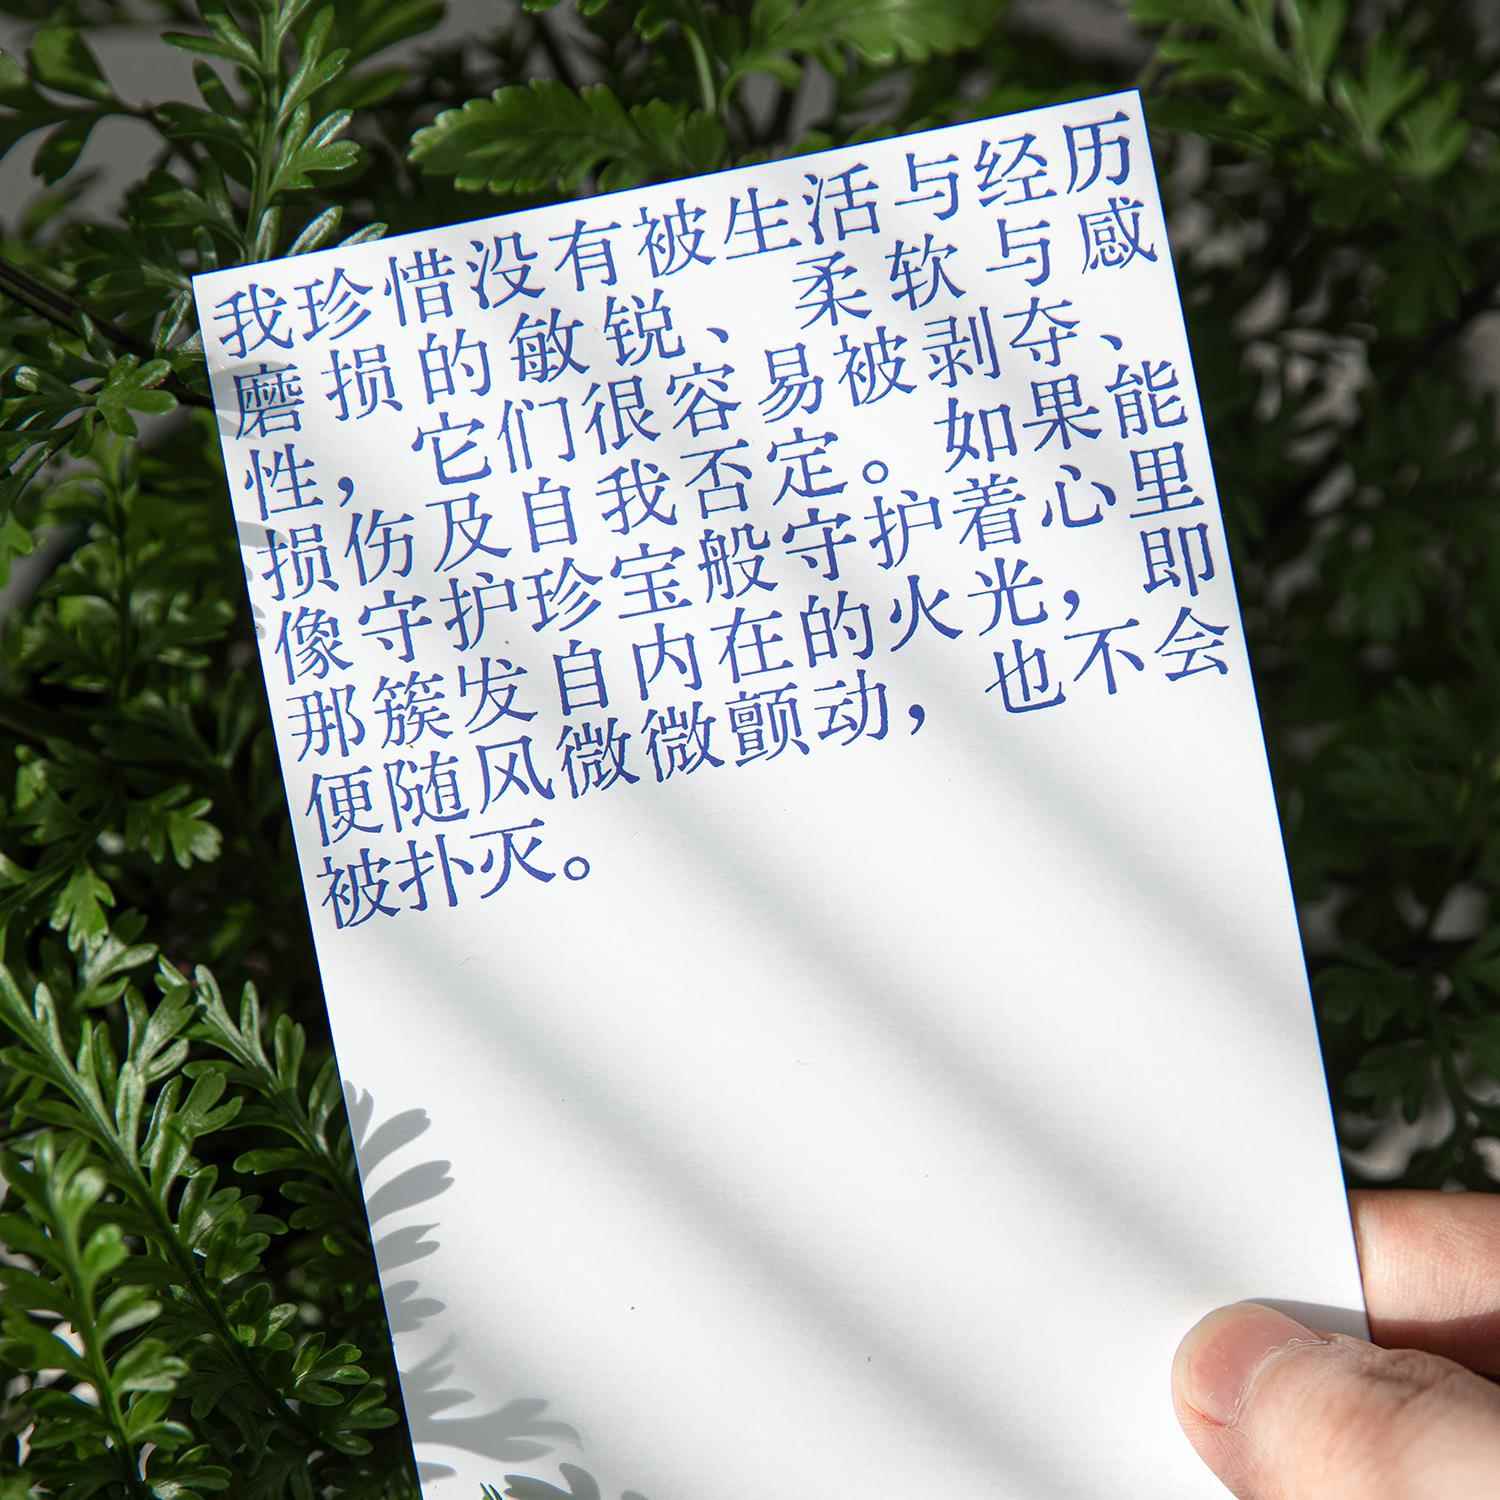 我珍惜没有被生活与经历
磨损的敏锐、柔软与感
性，它们很容易被剥夺、
损伤及自我否定。如果能
像守护珍宝般守护着心里
那簇发自内在的火光，即
便随风微微颤动，也不会
被扑灭。